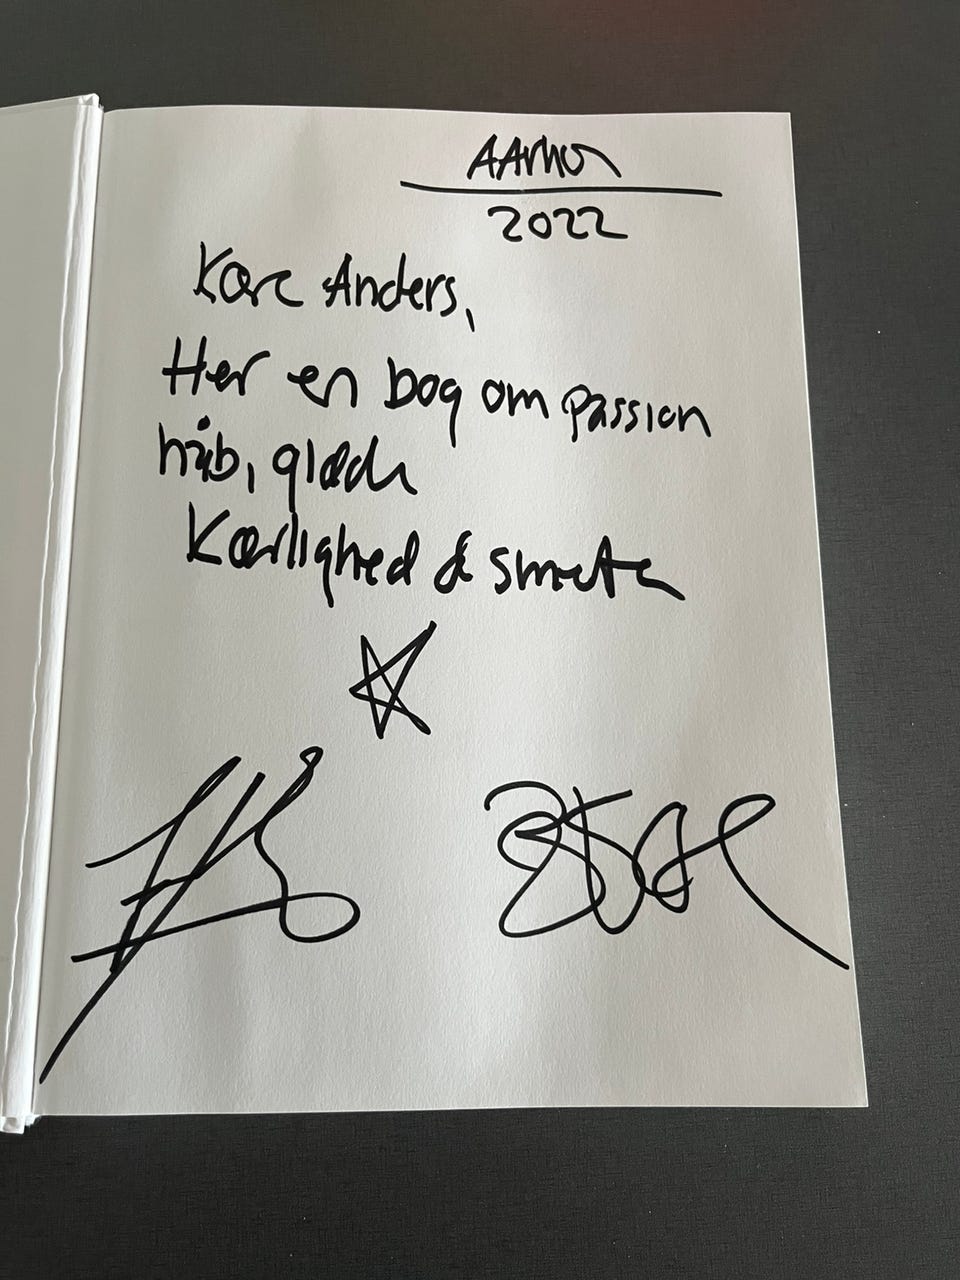 AArhus
2022
Kære Anders,
Her en bog om passion
håb, glæde
Kærlighed & smerte